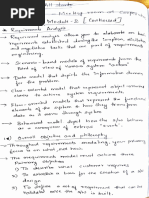 Module-2 [Continued]
→ Requirements Analysis
→ Requirement analysis allows you to elaborate on basic
requirements established during the inception, elicitation
and negotiation tasks that are part of requirements
engineering
→ Scenario-based models of requirements from the
Point of view of various system "actors"
→ Data model that depict the information domain
for the problem.
→ Class-oriented models that represent object-oriented
classes
→ Flow-oriented models that represent the functional
elements of the system and how they transform
data
→ Behavioral models depict how the s/w behaves
as a consequence of external "events"
Overall objective and philosophy
→ Throughout requirements modelling, your primary focus
is on what, not how.
→ The requirements model must achieve three
primary objectives
1) To describe what customer requires
2) To establish a basis for the creation of a s/w
design
3) To define a set of requirements that can be
validated once the s/w is built.